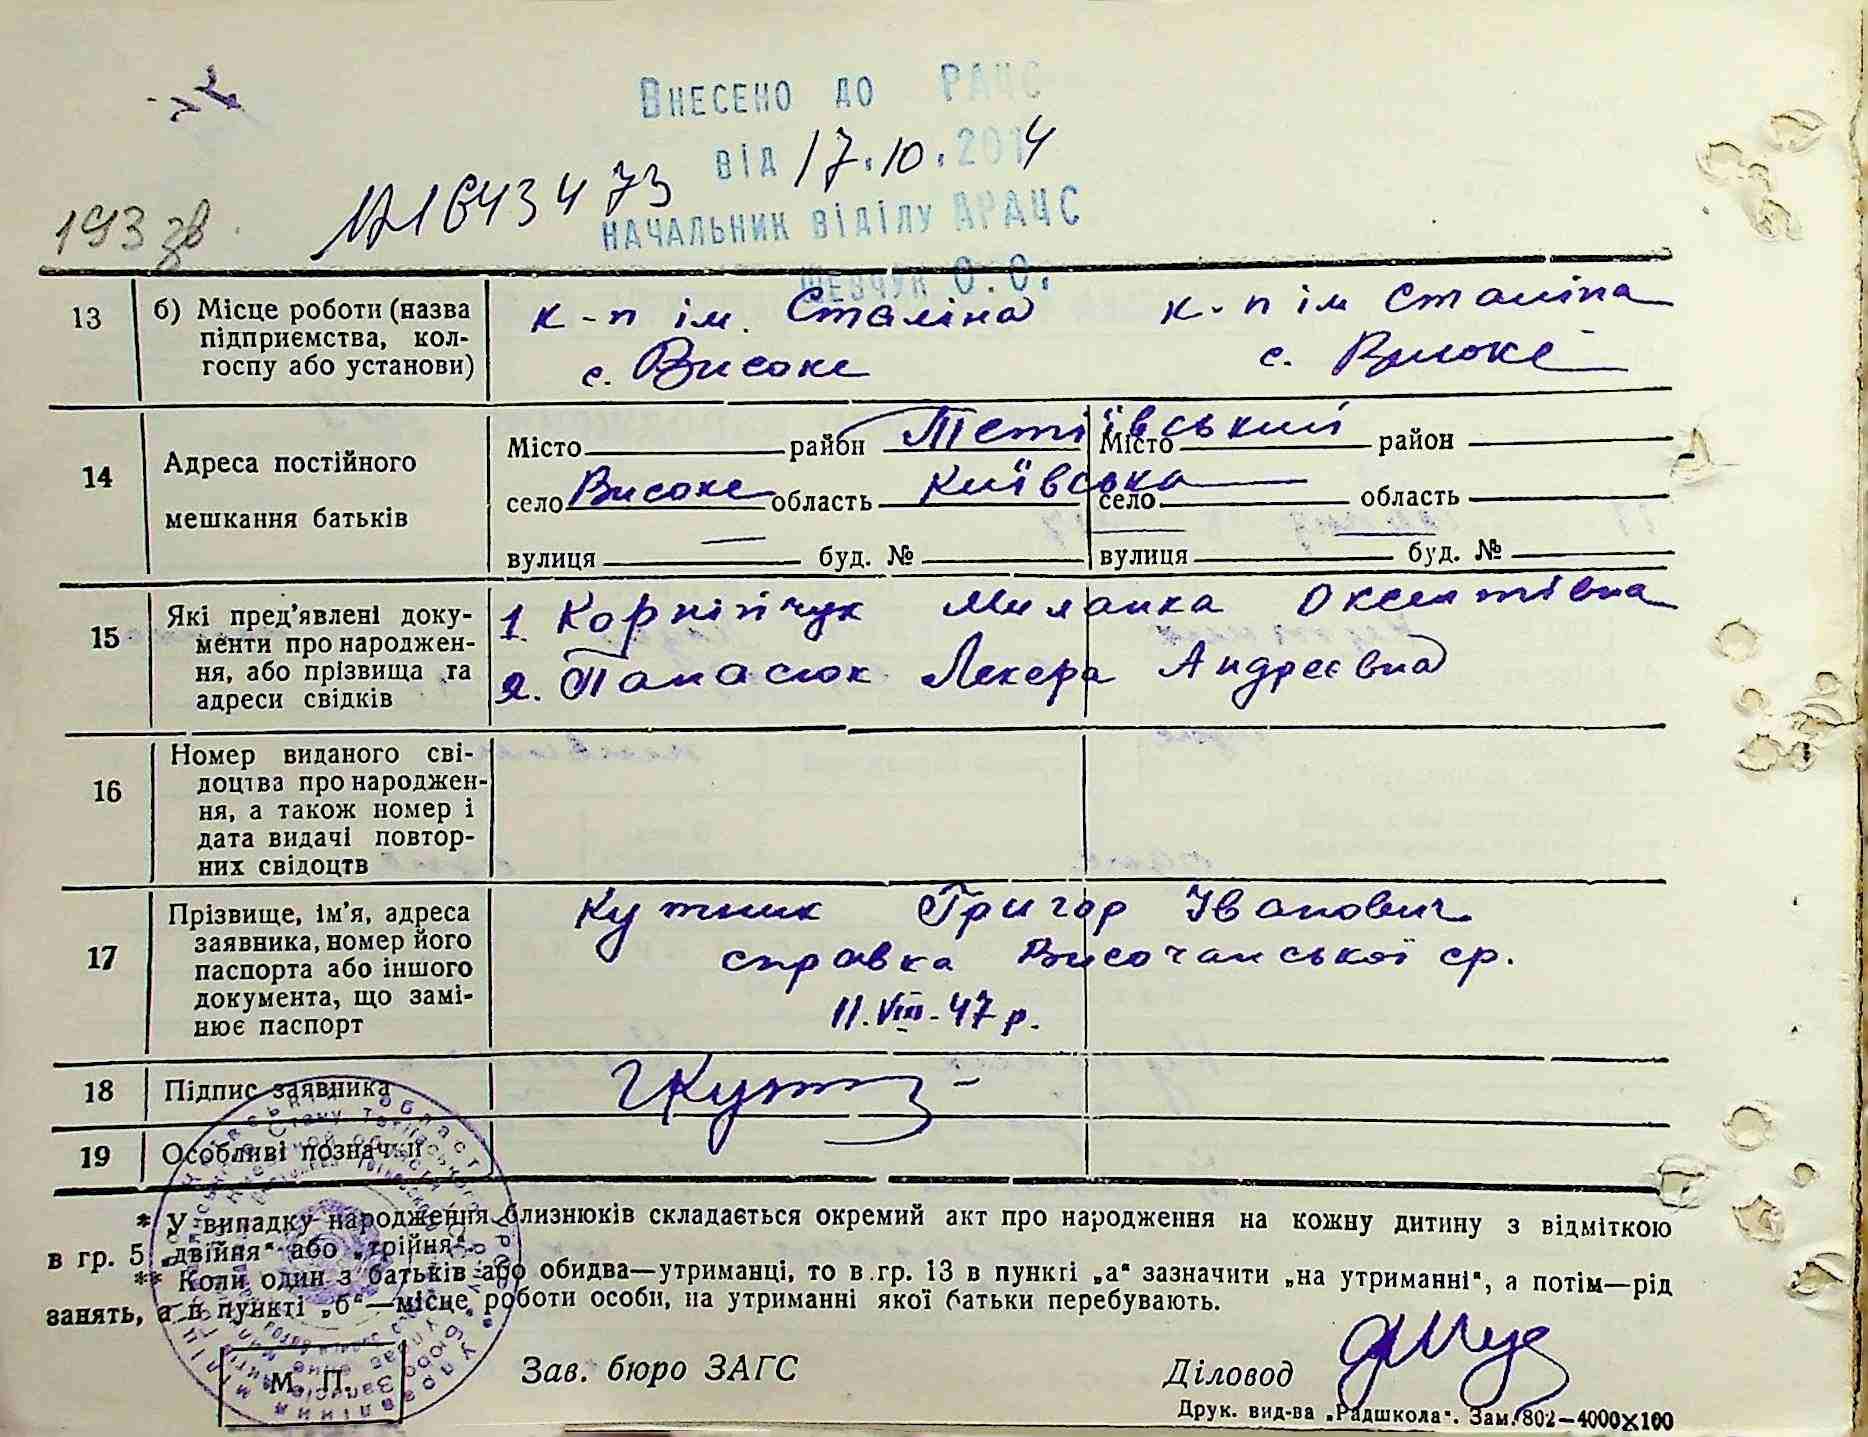 Внесено до РАЦС
від 17.10.2014
121643473
193 зв.
начальник віділу ДРАЦС
Шевчук О.О.
13 б) Місце роботи (назва підприємства, кол-
госпу або установи)
к-п ім. Сталіна к-п ім Сталіна
с. Високе с. Високе
14 Адреса постійного
мешкання батьків
Місто район Тетіївський Місто район
село Високе область Київська село область
вулиця — буд. № вулиця буд. №
15 Які пред'явлені доку-
менти про народжен-
ня, або прізвища та
адреси свідків
1. Корнійчук Миланка Оксентівна
2. Панасюк Лекера Андреєвна
16 Номер виданого сві-
доцтва про народжен-
ня, а також номер і
дата видачі повтор-
них свідоцтв
17 Прізвище, ім'я, адреса
заявника, номер його
паспорта або іншого
документа, що замі-
нює паспорт
Кутник Григор Іванович
справка Височанської ср.
11.VIII-47 р.
18 Підпис заявника
19 Особливі позначки
* У випадку народження близнюків складається окремий акт про народження на кожну дитину з відміткою
в гр. 5 „двійня“ або „трійня“.
** Коли один з батьків або обидва—утриманці, то в гр. 13 в пункті „а“ зазначити „на утриманні“, а потім—рід
занять, а в пункті „б“—місце роботи особи, на утриманні якої батьки перебувають.
М. П.
Зав. бюро ЗАГС Діловод
Друк. вид-ва „Радшкола“. Зам. 802—4000×100